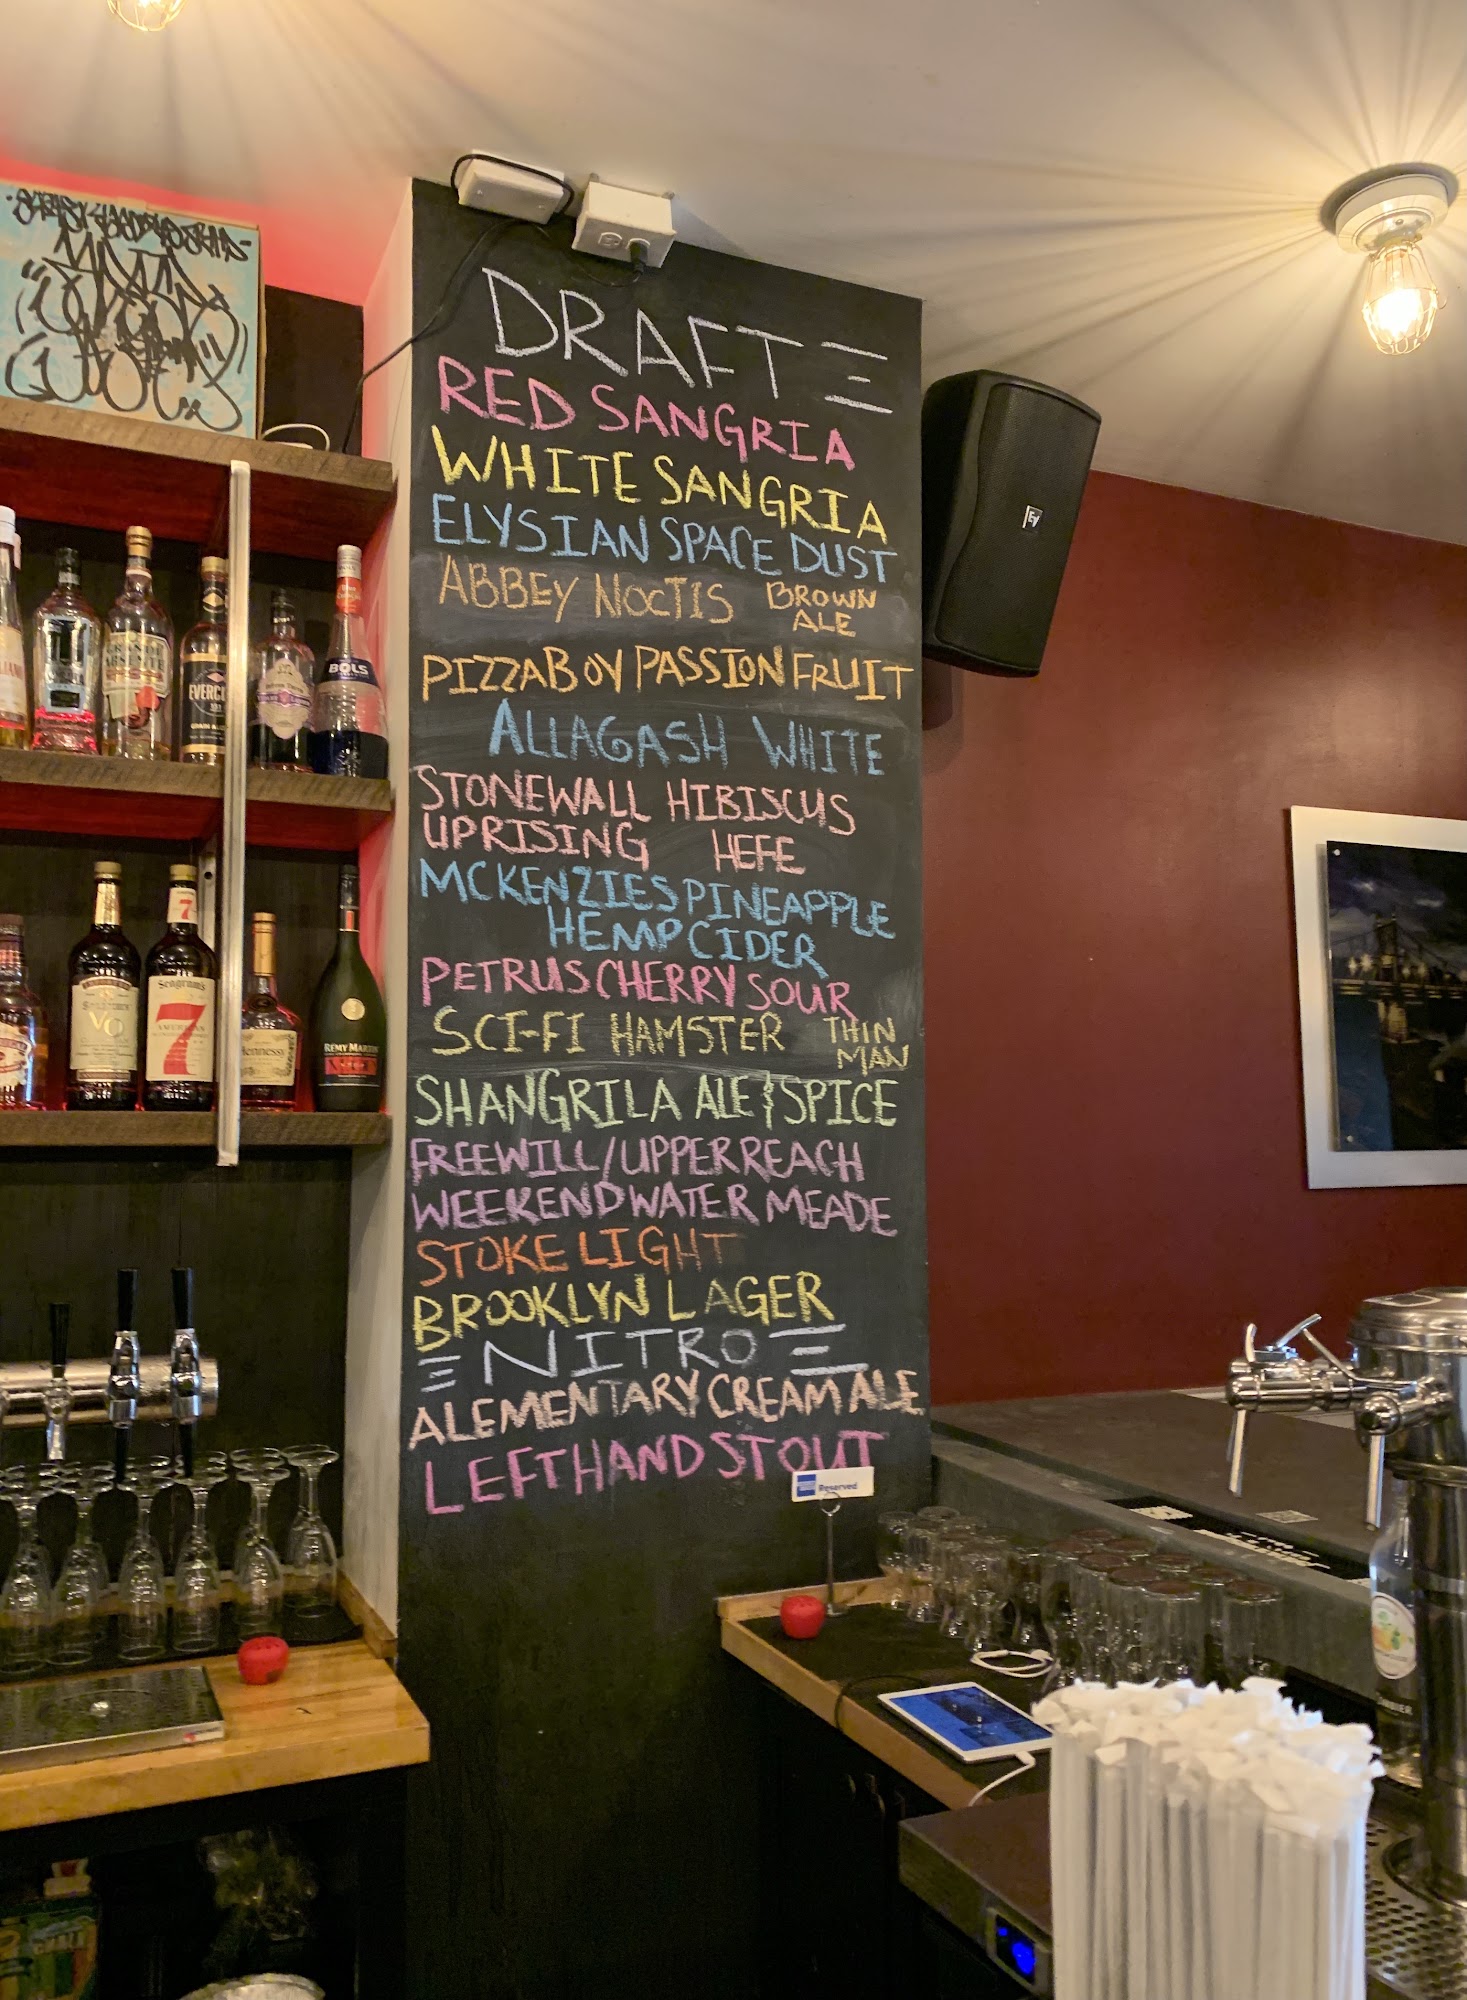 DRAFT
RED SANGRIA
WHITE SANGRIA
ELYSIAN SPACE DUST
ABBEY NOCTIS BROWN
ALE
PIZZABOY PASSIONFRUIT
ALLAGASH WHITE
STONEWALL HIBISCUS
UPRISING HEFE
MCKENZIES PINEAPPLE
HEMP CIDER
PETRUS CHERRY SOUR
SCI-FI HAMSTER THIN
MAN
SHANGRILA ALE / SPICE
FREEWILL/UPPERREACH
WEEKENDWATER MEADE
STOKE LIGHT
BROOKLYN LAGER
NITRO
ALEMENTARY CREAM ALE
LEFTHAND STOUT
Reserved
BOLS
Seagram's
7
AMERICAN
VO
Hennessy
RÉMY MARTIN
V.S.O.P
EV